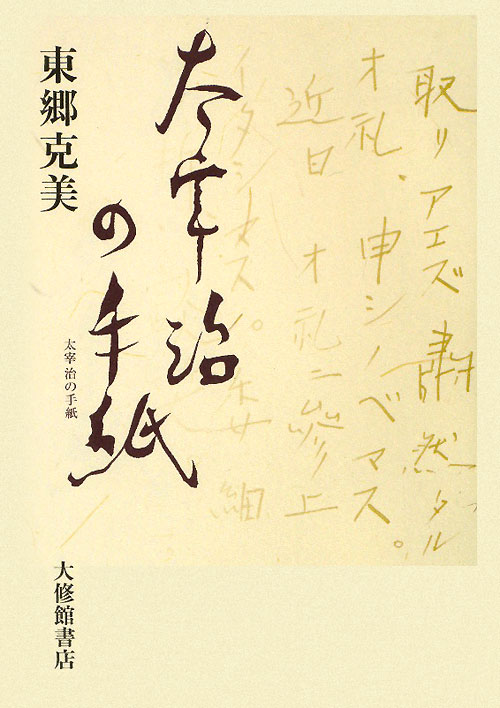 取リアエズ 肅然タル
オ礼、申シノベマス。
近日 オ礼ニ參上
イタシマス。委細
太宰治
の手紙
太宰 治の手紙
東郷克美
大修館書店